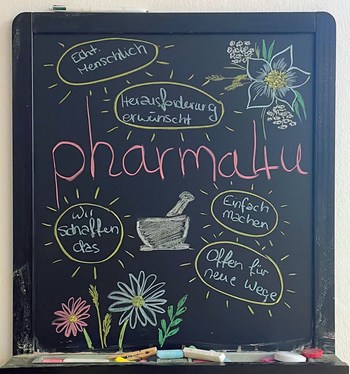 Echt.
Menschlich
Herausforderung
erwünscht
pharma4u
Wir
schaffen
das
Einfach
machen
Offen für
neue Wege